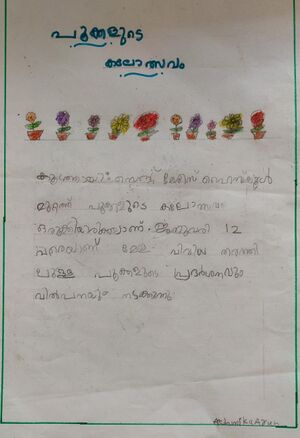 പൂക്കളുടെ
കലോത്സവം
സെന്റ് മേരീസ് ഹൈസ്കൂൾ
മുറ്റത്ത് പൂക്കളുടെ കലോത്സവം
ഒരുക്കിയിരിക്കുകയാണ്. ജനുവരി 12
വരെയാണ് മേള. വിവിധ തരത്തി
ലുള്ള പൂക്കളുടെ പ്രദർശനവും
വിൽപനയും നടക്കുന്നു.